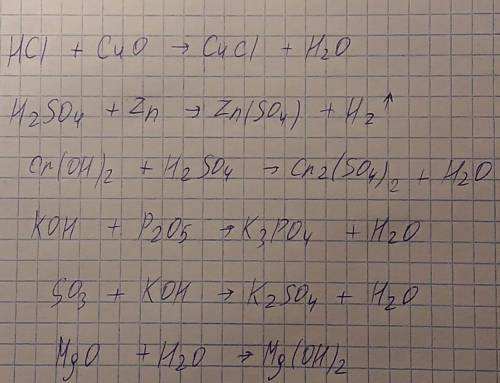 HCl + CuO → CuCl + H2O
H2SO4 + Zn → Zn(SO4) + H2↑
Cr(OH)2 + H2SO4 → Cr2(SO4)2 + H2O
KOH + P2O5 → K3PO4 + H2O
SO3 + KOH → K2SO4 + H2O
MgO + H2O → Mg(OH)2